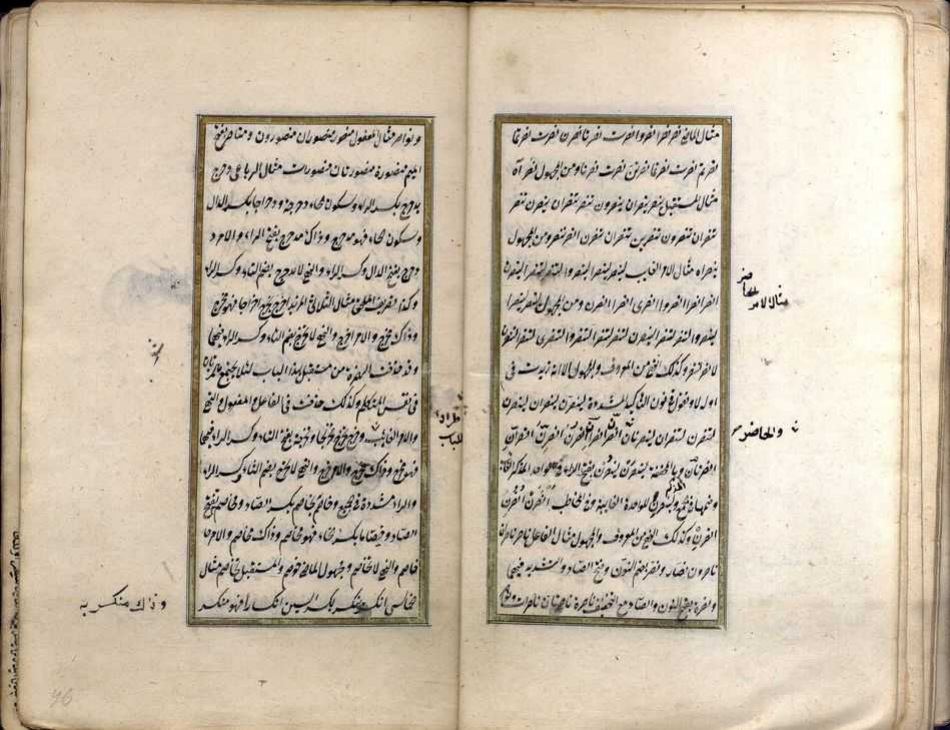 مثال الماضى نصر نصرا نصروا نصرت نصرتا نصرن نصرت نصرتما
نصرتم نصرت نصرتما نصرتن نصرت نصرنا ومن المجهول نصر آه
مثال المستقبل ينصر ينصران ينصرون تنصر تنصران ينصرن تنصر
تنصران تنصرون تنصرين تنصران تنصرن انصر ننصر ومن المجهول
ينصر اه مثال الامر الغايب لينصر لينصرا لينصروا لتنصر لتنصرا لينصرن
انصر انصرا انصروا انصرى انصرا انصرن ومن المجهول لينصر لينصرا
لينصروا لتنصر لتنصرا لينصرن لتنصر لتنصرا لتنصروا لتنصرى لتنصرا لتنصرن
لانصر لننصر وكذلك النهى من المعروف والمجهول الا انه زيدت فى
اوله لا وفى اخره نون التاكيد المشددة لينصرن لينصران لينصرن
لتنصرن لتنصران لينصرنان انصرن انصران انصرن انصرن انصران
انصرنان وبالمخففة لينصرن لينصرن بفتح الراء فى الواحد المذكر
وضمها فى الجمع لتنصرن للواحدة الغايبة وفى المخاطب انصرن انصرن
انصرن وكذلك النهى من المعروف والمجهول مثال الفاعل ناصر ناصران
ناصرون نصار ونصر بضم النون وفتح الصاد والتشديد فيهما
ونصرة بفتح النون والصاد مع التخفيف ناصرة ناصرتان ناصرات
مثال الامر الحاضر
والحاضر
ونواصر مثال المفعول منصور منصوران منصورون ومناصر بفتح
الميم منصورة منصورتان منصورات مثال الرباعى دحرج
يدحرج بكسر الراء وسكون الحاء دحرجة ودحراجا بكسر الدال
وسكون الحاء فهو مدحرج وذاك مدحرج بفتح الراء والامر
دحرج بفتح الدال وكسر الراء والنهى لا تدحرج بضم التاء وكسر الراء
وكذا تصريف الملحق مثال الثلاثى المزيد اخرج يخرج اخراجا فهو مخرج
وذاك مخرج والامر اخرج والنهى لا تخرج بضم التاء وكسر الراء فيهما
وقد حذفت الهمزة من مستقبل هذا الباب لئلا يجتمع همزتان
فى نفس المتكلم وكذلك حذفت فى الفاعل والمفعول والنهى
والامر الغايب وخرج يخرج تخريجا وتخرجة بفتح التاء وكسر الراء فيهما
فهو مخرج وذاك مخرج والامر خرج والنهى لا تخرج بضم التاء وكسر الراء
والراء مشددة فى الجميع وخاصم يخاصم بكسر الصاد ومخاصمة بفتح
الصاد وخيصاما بكسر الخاء فهو مخاصم وذاك مخاصم والامر
خاصم والنهى لا تخاصم ومجهول الماضى خوصم والمستقبل يخاصم مثال
خماسى انكسر ينكسر بكسر السين انكسارا فهو منكسر
طرادا للباب
وذاك منكسر به